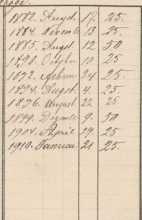 1882. August 17. 25.
1884. Novemb 13. 25.
1885. August 12 50
1890. Octobr 10 25
1892. 24 25.
1894. August 4. 25.
1896. August 22 25
1899. 9. 50
1904. April 29 25
1910. Januar 21 25.